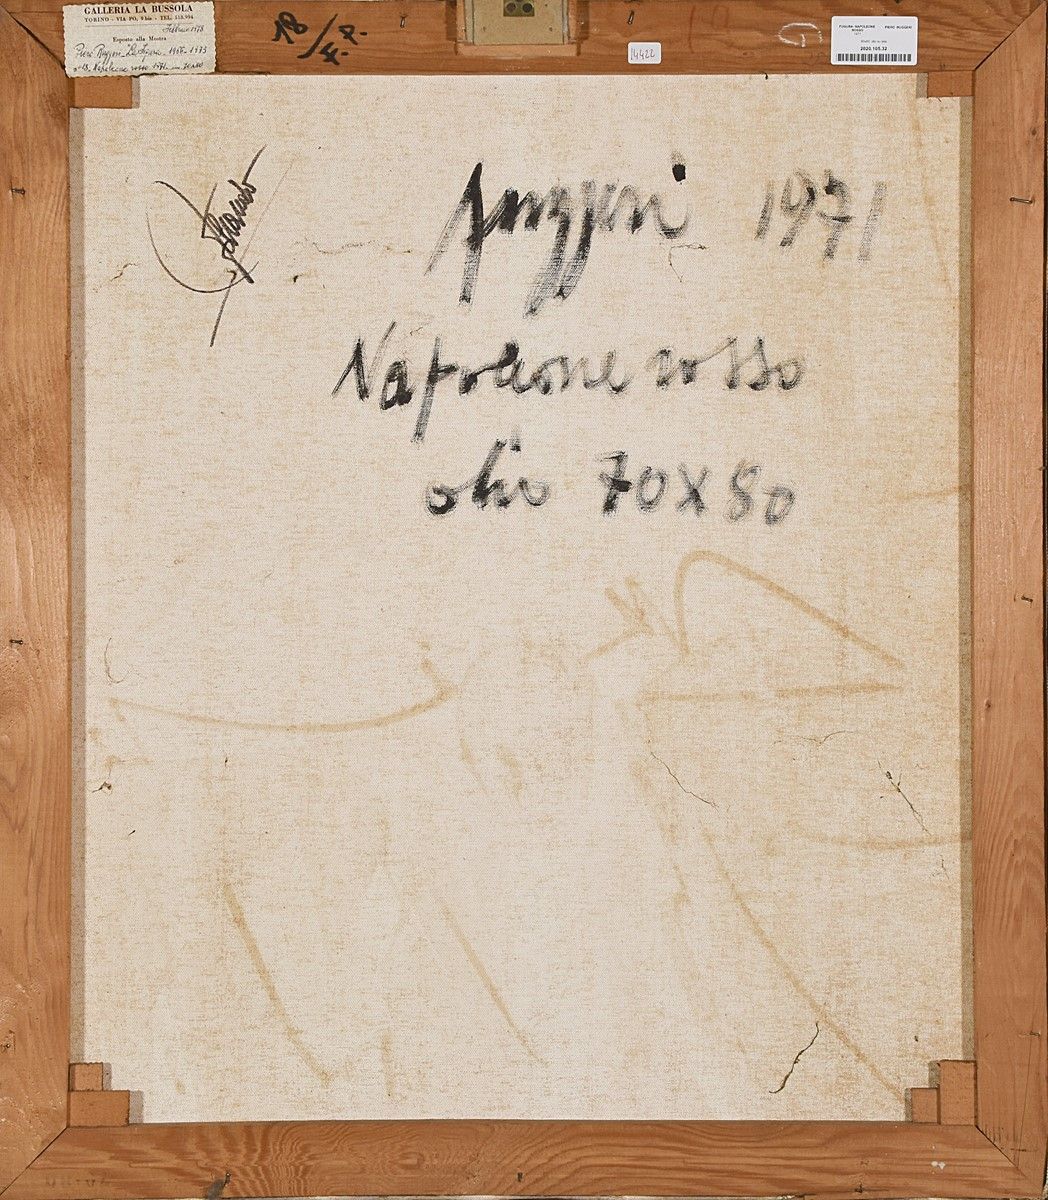 GALLERIA LA BUSSOLA
TORINO - VIA PO, 9 bis - TEL.
Febbraio 1973
Esposto alla Mostra
Piero Ruggeri 1973
Napoleone rosso 1971 70x80
18/F.P.
4422
FIGURA: NAPOLEONE ROSSO
PIERO RUGGERI
2020.105.32
Ruggeri 1971
Napoleone rosso
olio 70X80